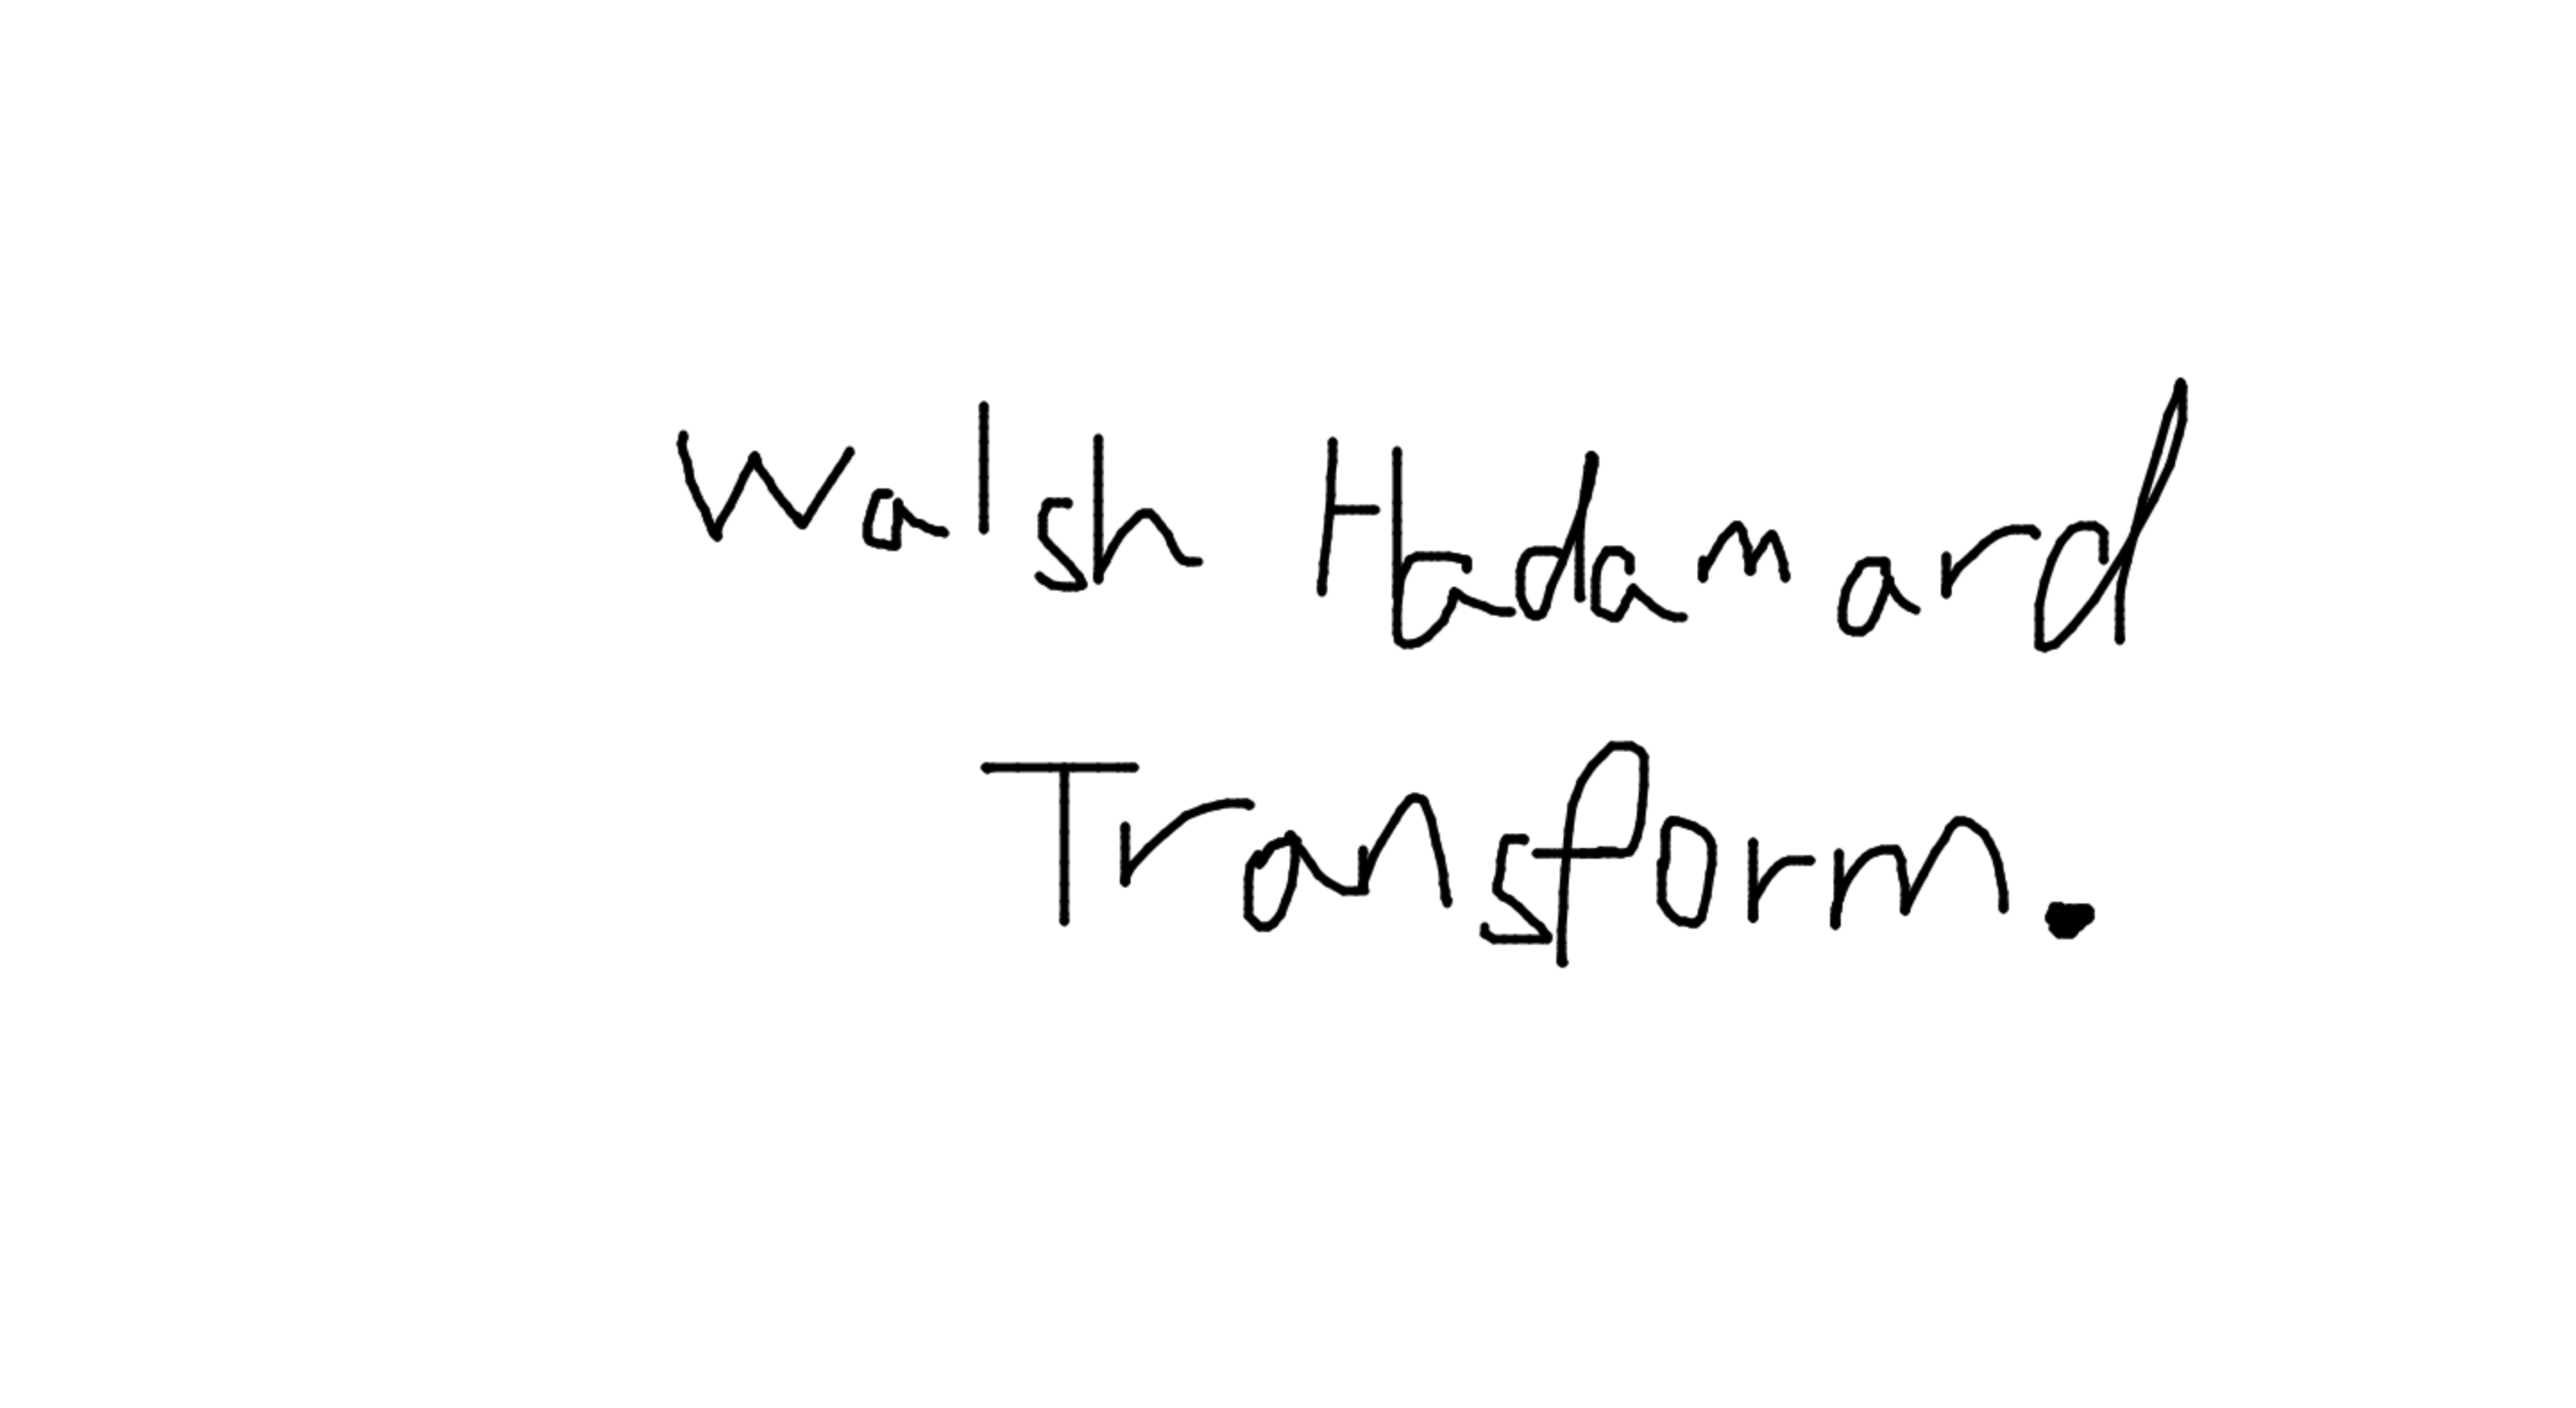 Walsh Hadamard
Transform.